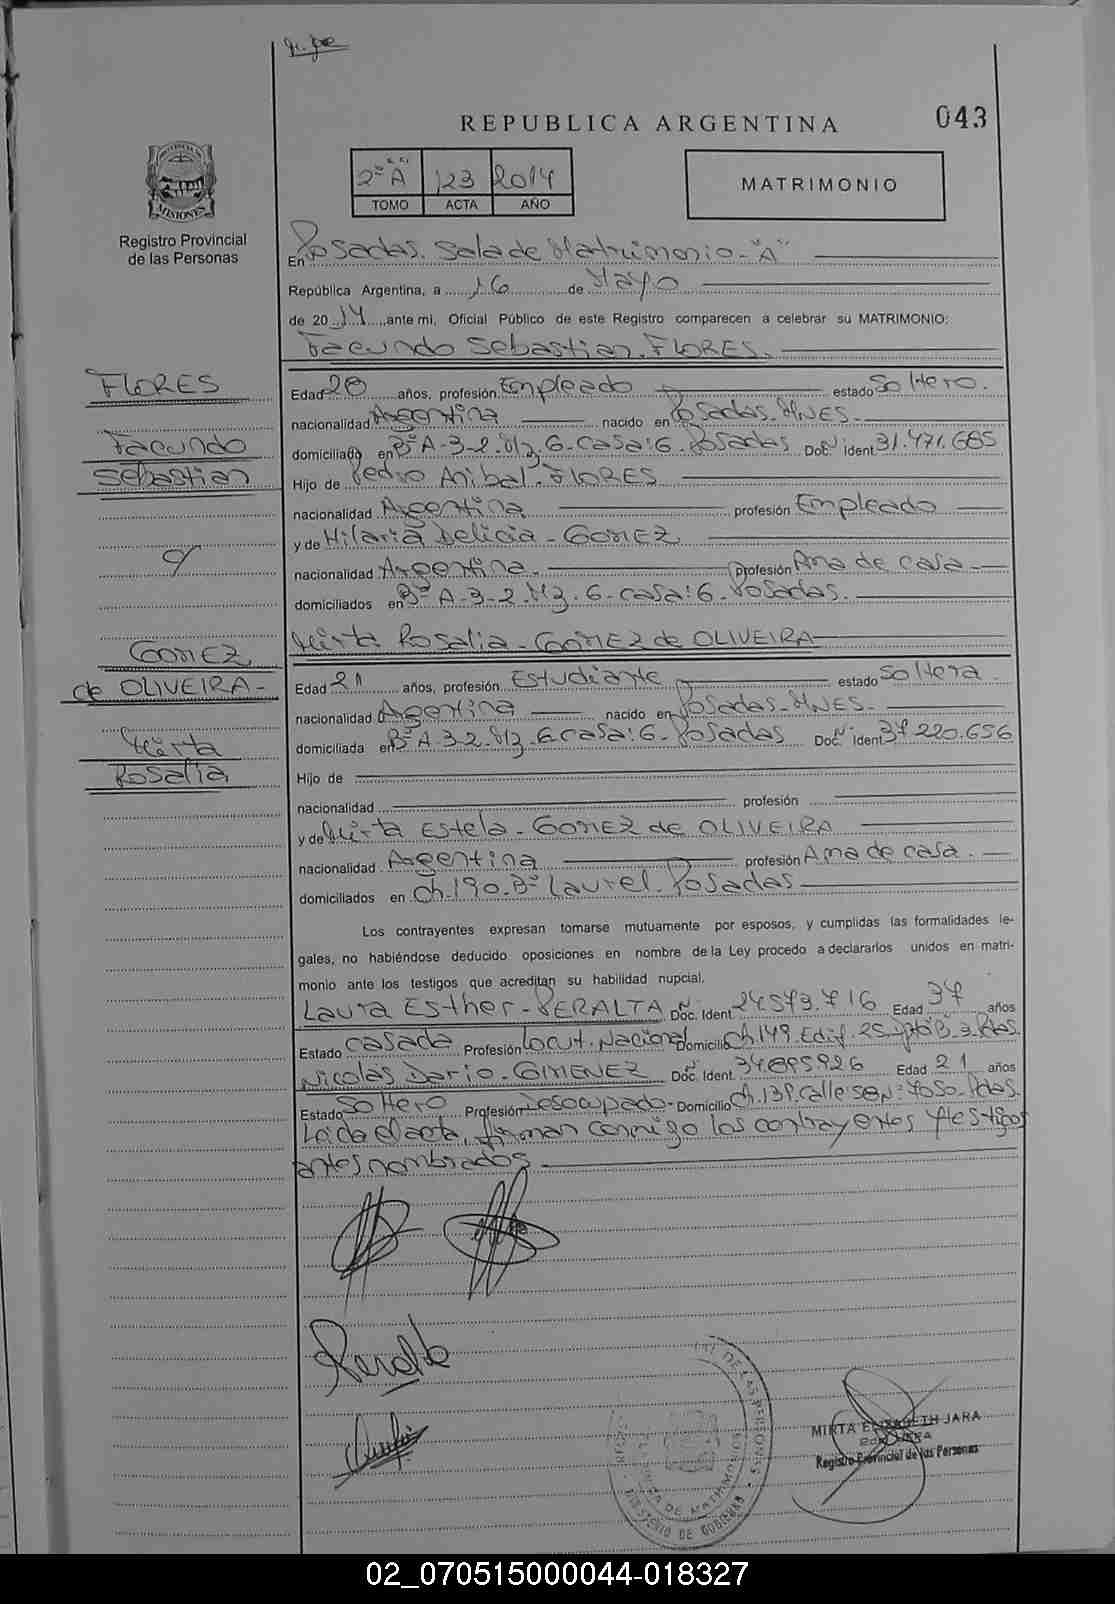 043
REPUBLICA ARGENTINA
2º "A" 123 2014
TOMO ACTA AÑO
MATRIMONIO
PROVINCIA DE MISIONES
Registro Provincial
de las Personas
En Posadas. Sala de Matrimonio - "A"
República Argentina, a 16 de Mayo
de 2014, ante mi, Oficial Público de este Registro comparecen a celebrar su MATRIMONIO:
Facundo Sebastian. FLORES.
FLORES
Facundo
Sebastian
y
GOMEZ
de OLIVEIRA -
Mirta
Rosalia
Edad 28 años, profesión Empleado estado Soltero.
nacionalidad Argentina nacido en Posadas. MNES.
domiciliado en Bº A-3-2. Mz. 6. casa: 6. Posadas Doc. Ident 31.471.685
Hijo de Pedro Anibal. FLORES
nacionalidad Argentina profesión Empleado
y de Hilaria Delicia - GOMEZ
nacionalidad Argentina. profesión Ama de casa
domiciliados en Bº A-3-2. Mz. 6. casa: 6. Posadas.
Mirta Rosalia - GOMEZ de OLIVEIRA
Edad 21 años, profesión Estudiante estado Soltera.
nacionalidad Argentina nacido en Posadas. MNES.
domiciliada en Bº A-3-2. Mz. 6 casa: 6. Posadas Doc. Ident 37.220.656
Hijo de
nacionalidad profesión
y de Mirta Estela - GOMEZ de OLIVEIRA
nacionalidad Argentina profesión Ama de casa.
domiciliados en Ch. 190. Bº Laurel. Posadas
Los contrayentes expresan tomarse mutuamente por esposos, y cumplidas las formalidades le-
gales, no habiéndose deducido oposiciones en nombre de la Ley procedo a declararlos unidos en matri-
monio ante los testigos que acreditan su habilidad nupcial.
Laura Esther - PERALTA Doc. Ident. 24.573.716 Edad 37 años
Estado casada Profesión Locut. Nacional Domicilio Ch. 149. Edif. 25
Nicolas Dario - GIMENEZ Doc. Ident. 34.895.926 Edad 21 años
Estado Soltero Profesión Desocupado - Domicilio Ch. 139. calle S8 Nº: 4050. Pdas.
Leida el acta, firman conmigo los contrayentes y testigos
antes nombrados
Peralta
MIRTA ELIZABETH JARA
Registro Provincial de las Personas
MINISTERIO DE GOBIERNO
02_070515000044-018327